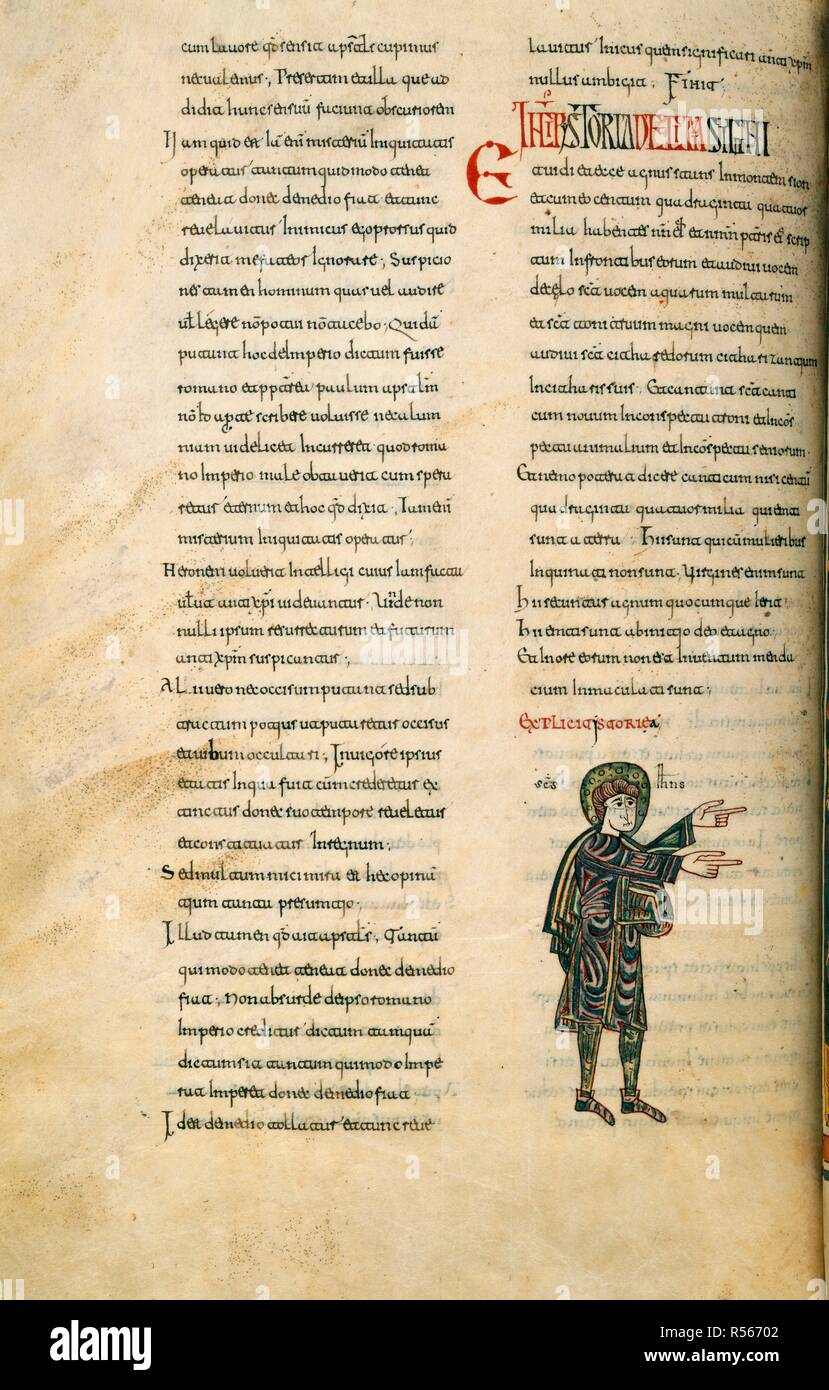 cum lauore qd sensit apsłs cupimus
nec ualemus Presertim et illa que ad
didit hunc sensuū faciunt obscuriorem
Nam quid est Iā enī misteriū Iniquitatis
operatur tantum qui modo tenet
teneat donec de medio fiat et tunc
reuelauitur Inimicus ego prossus quid
dixerit me fateor Ignorare Suspicio
nes tamen hominum quas uel audire
uł legere nō potui nō tacebo Quidā
putant hoc de Imperio dictum fuisse
romano et ppterea paulum apsłm
nōłd aperte scribere uoluisse ne calum
niam uidelicet Incurreret quod roma
no Imperio male obtauerit cum spera
retur eternum et hoc qd dixit Iam enī
misterium Iniquitatis operatur
Neronem uoluerit Intelligi cuius Iam facta
uelut antixpi uideuantur Unde non
nulli ipsum resurrecturum et futurum
antixpm suspicantur
Alii uero nec occisum putant sed sub
tractum potius ut putaretur occisus
et uibum occultari In uigore ipsius
etatis In qua fuit cum crederetur ex
tinctus donec suo tempore reueletur
et constituatur In regnum
Sed multum mici mira est hec opinā
tium tanta presumtio
Illud tamen qd ait apsłs Tantū
qui modo tenet teneat donec de medio
fiat Non absurde de ipso romano
Imperio creditur dictum tamquā
dictum sit tantum qui modo Impe
rat Imperet donec de medio fiat
Id est de medio tollatur et tunc reue
lauitur Inicus quem significari antixpm
nullus ambigit Finit
INCIPIT ISTORIA DE ILLA SIGNI
Et uidi et ecce agnus stans In montem sion
et cum eo centum quadraginta quatuor
milia habentes nm̄ eł et nmn patris eł scrip
tum In frontibus eorum et audiui uocem
de celo scā uocem aquarum multarum
et scā tonitruum magni uocem quem
audiui scā citharedorum citharizantium
In citharis suis Et cantant scā canti
cum nouum In conspectu troni et In cōs
pectu animalium et In cōspectu seniorum
Et nemo poterat dicere canticum nisi centū
quadraginta quatuor milia qui emti
sunt a terra Hii sunt qui cū mulieribus
Inquinati non sunt Uirgines enim sunt
Hii secuntur agnum quocumque Ierit
Hii emti sunt ab initio deo et agno
Et In ore eorum non est Inuentum menda
cium Inmaculati sunt
EXPLICIT ISTORIE
scs Ihns
alamy
Image ID: R56702
www.alamy.com